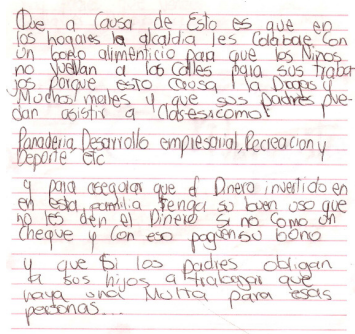 Que a Causa de Esto es que en
los hogares la alcaldia les Colabore Con
un bono alimenticio Para que los Niños
no vuelvan a las Calles para sus traba
jos porque esto causa la Drogas y
Muchos males y que sus padres pue-
dan asistir a Clases como:
Panaderia, Desarrollo empresarial, Recreacion y
Deporte etc
y para asegurar que el Dinero invertido en
en esta familia tenga su buen uso que
no les den el Dinero Si no Como un
cheque y Con eso paguen su bono
y que Si los Padres obligan
a sus hijos a trabajar que
haya una Multa para esas
personas...